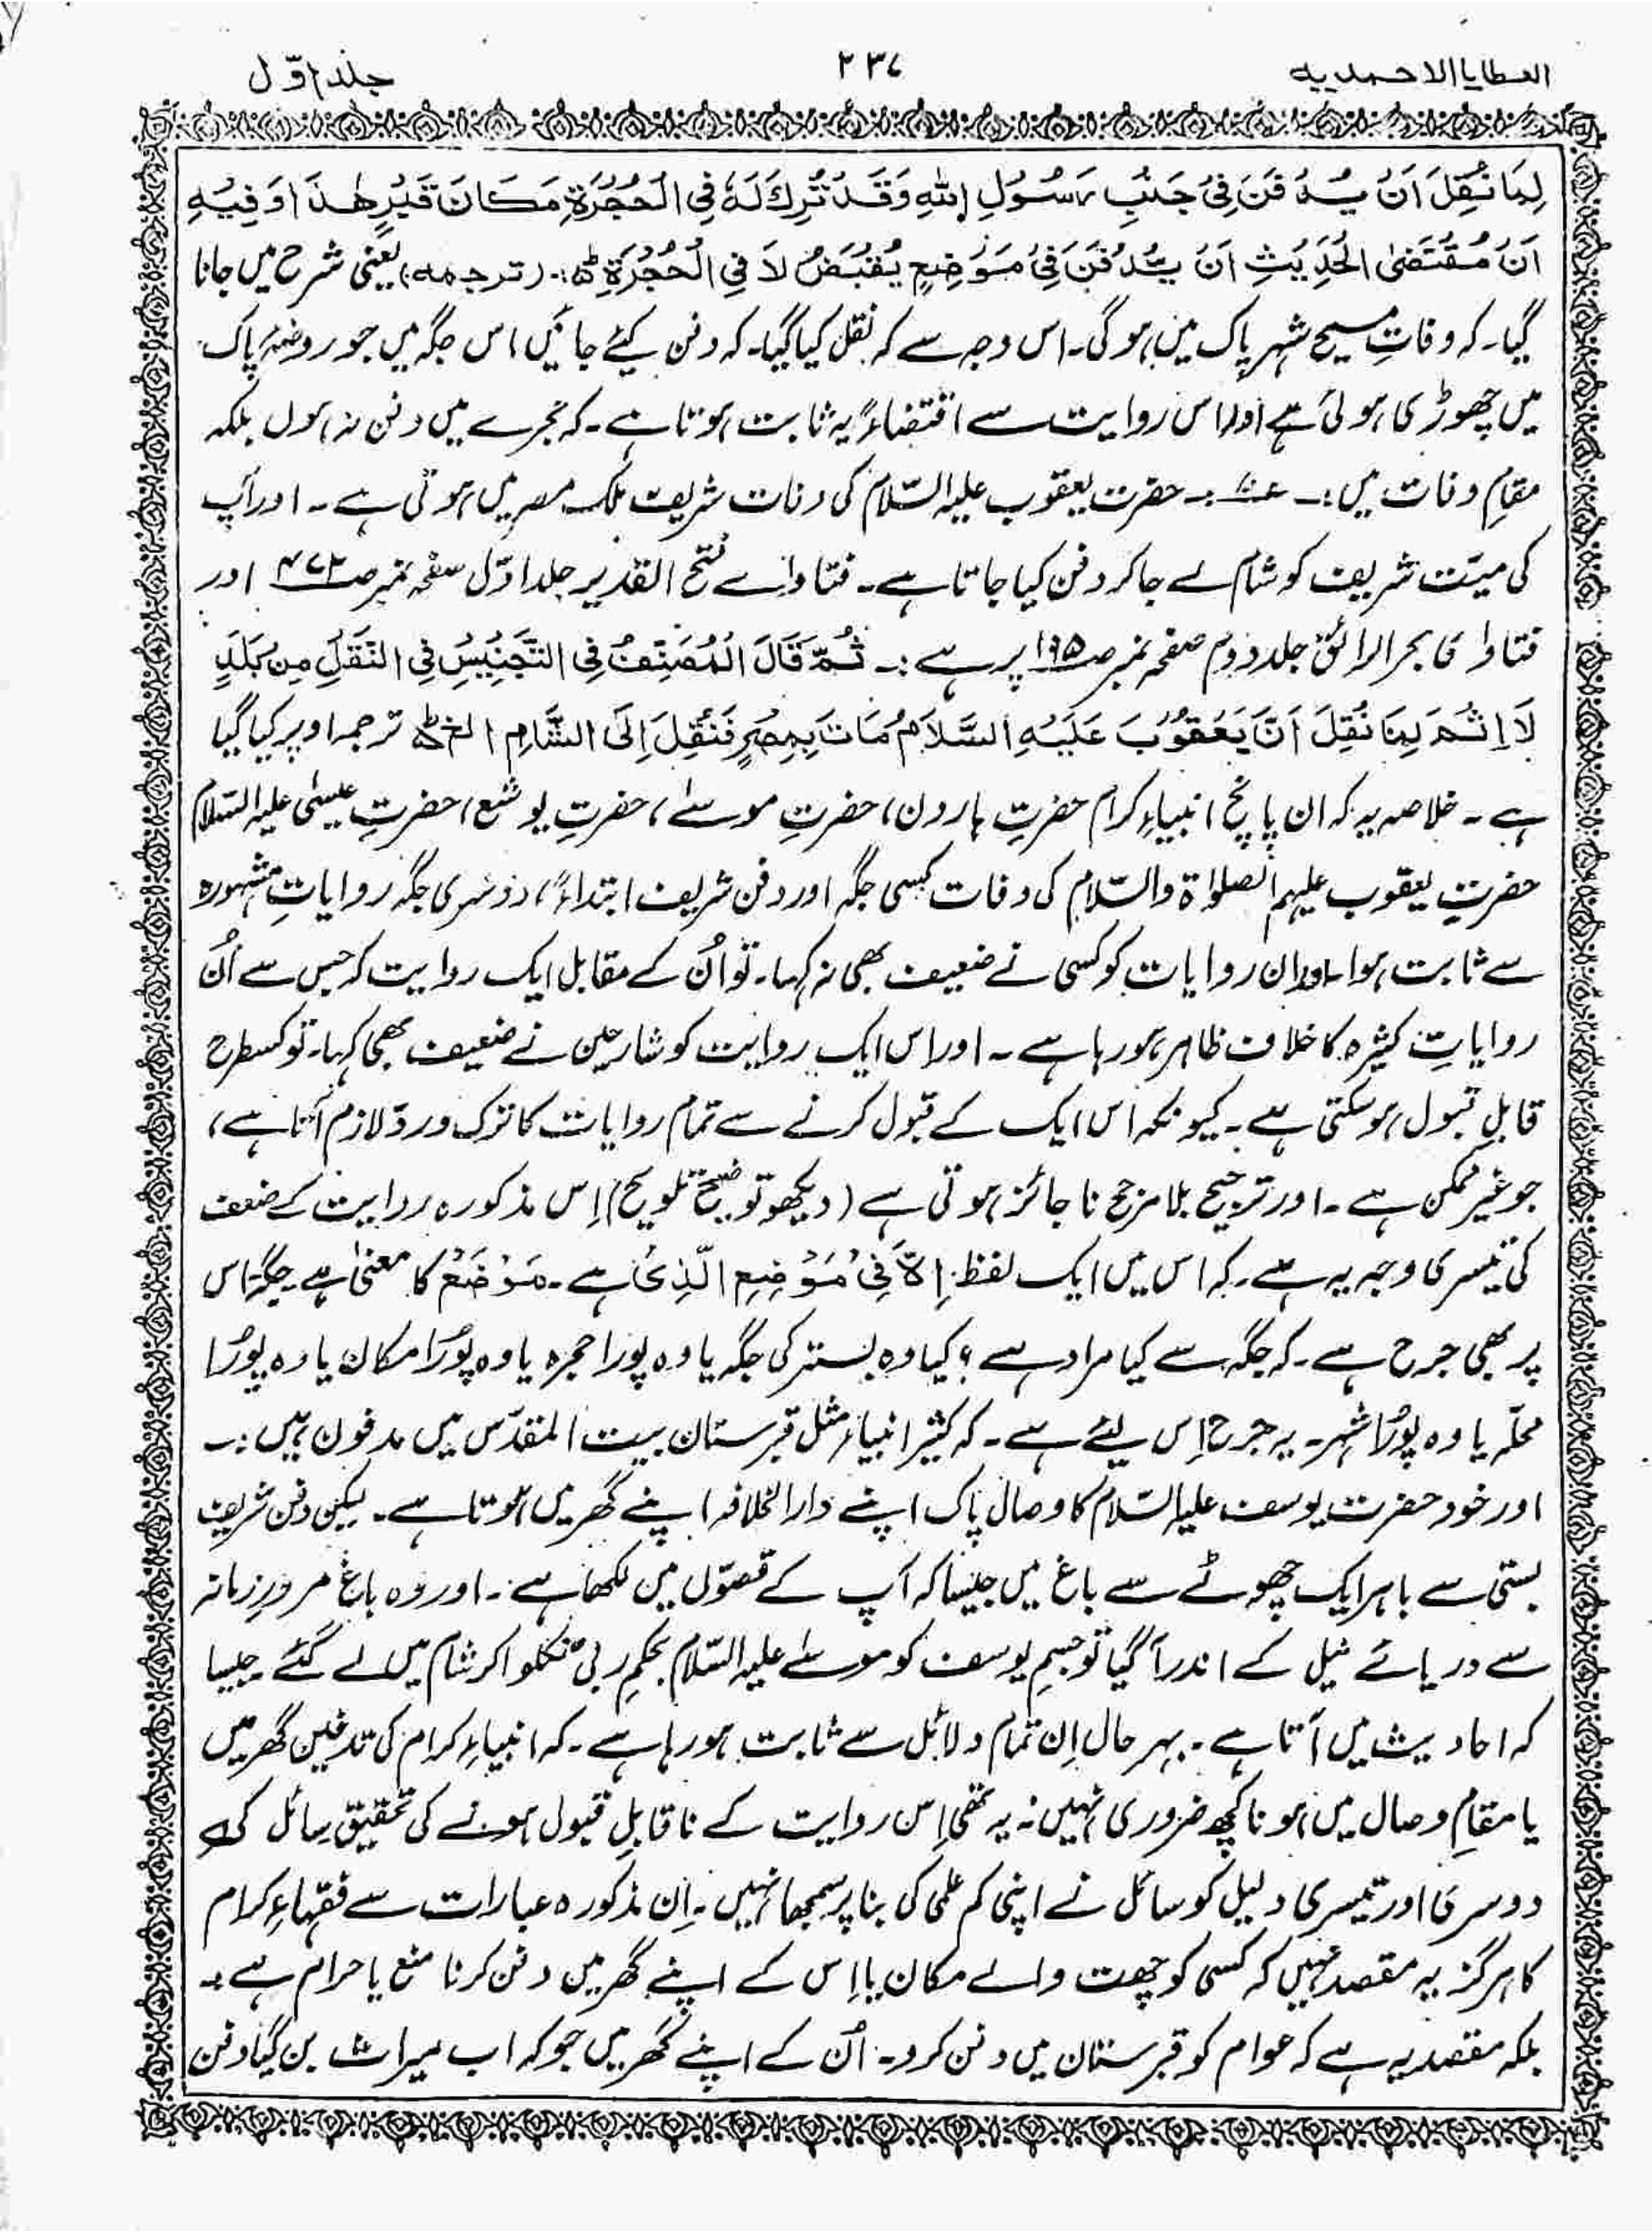 العطایا الاحمدیہ
۲۳۷
جلد اوّل
لِمَا نُقِلَ اَنْ یُّدْفَنَ فِیْ جَنْبِ رَسُوْلِ اللہِ وَقَدْ تُرِكَ لَہٗ فِی الْحُجْرَۃِ مَکَانَ قَبْرٍ ھٰذَا وَفِیْہِ
اَنَّ مُقْتَضَی الْحَدِیْثِ اَنْ یُّدْفَنَ فِیْ مَوْضِعٍ یُقْبَضُ لَا فِی الْحُجْرَۃِ ؕ:۔ (ترجمہ) یعنی شرح میں جانا
گیا۔ کہ وفاتِ مسیح شہر پاک میں ہوگی۔ اس وجہ سے کہ نقل کیا گیا۔ کہ دفن کیئے جائیں اس جگہ میں جو روضۂ پاک
میں چھوڑی ہوئی ہے اور اس روایت سے اقتضاءً یہ ثابت ہوتا ہے۔ کہ حجرے میں دفن نہ ہوں بلکہ
مقامِ وفات میں:۔ :۔ حضرت یعقوب علیہ السّلام کی وفات شریف ملک مصر میں ہوئی ہے۔ اور آپ
کی میّت شریف کو شام لے جا کر دفن کیا جاتا ہے۔ فتاوائے فتح القدیر جلد اوّل صفحہ نمبر صـ۴۷۲ اور
فتاوای بحر الرائق جلد دوم صفحہ نمبر صـ۱۹۵ پر ہے:۔ ثُمَّ قَالَ الْمُصَنِّفُ فِی التَّجْنِیْسِ فِی النَّقْلِ مِنْ بَلَدٍ
لَا اِثْمَ لِمَا نُقِلَ اَنَّ یَعْقُوْبَ عَلَیْہِ السَّلَامُ مَاتَ بِمِصْرٍ فَنُقِلَ اِلَی الشَّامِ الخ ؕ ترجمہ اوپر کیا گیا
ہے۔ خلاصہ یہ کہ ان پانچ انبیاءِ کرام حضرتِ ہارون، حضرتِ موسےٰ، حضرتِ یوشع، حضرتِ عیسیٰ علیہ السّلام
حضرتِ یعقوب علیہم الصلوٰۃ والسّلام کی وفات کسی جگہ اور دفن شریف ابتداءً، دوسری جگہ روایاتِ مشہورہ
سے ثابت ہوا۔ اور ان روایات کو کسی نے ضعیف بھی نہ کہا۔ تو اُن کے مقابل ایک روایت کہ جس سے اُن
روایاتِ کثیرہ کا خلاف ظاہر ہو رہا ہے۔ اور اس ایک روایت کو شارحین نے ضعیف بھی کہا۔ تو کسطرح
قابلِ قبول ہو سکتی ہے۔ کیونکہ اس ایک کے قبول کرنے سے تمام روایات کا ترک و ردّ لازم آتا ہے،
جو غیر ممکن ہے۔ اور ترجیح بلا مرجح ناجائز ہوتی ہے (دیکھو توضیح تلویح) اِس مذکورہ روایت کے ضعف
کی تیسری وجہ یہ ہے۔ کہ اس میں ایک لفظ: اِلَّا فِیْ مَوْضِعِ الَّذِیْ ہے۔ مَوْضَعْ کا معنیٰ ہے جگہ۔ اس
پر بھی جرح ہے۔ کہ جگہ سے کیا مراد ہے؟ کیا وہ بستر کی جگہ یا وہ پورا حجرہ یا وہ پُورا مکان یا وہ پُورا
محلّہ یا وہ پُورا شہر۔ یہ جرح اِس لیئے ہے۔ کہ کثیر انبیاء مثل قبرستان بیت المقدّس میں مدفون ہیں:۔
اور خود حضرت یوسف علیہ السّلام کا وصال پاک اپنے دار الخلافہ اپنے گھر میں ہوتا ہے۔ لیکن دفن شریف
بستی سے باہر ایک چھوٹے سے باغ میں جیسا کہ آپ کے قصّوں میں لکھا ہے۔ اور وہ باغ مرورِ زمانہ
سے دریائے نیل کے اندر آگیا تو جسمِ یوسف کو موسےٰ علیہ السّلام بحکمِ ربی نکلوا کر شام میں لے گئے۔ جیسا
کہ احادیث میں آتا ہے۔ بہر حال اِن تمام دلائل سے ثابت ہو رہا ہے۔ کہ انبیاءِ کرام کی تدفین گھر میں
یا مقامِ وصال میں ہونا کچھ ضروری نہیں: یہ تھی اِس روایت کے ناقابلِ قبول ہونے کی تحقیق سائل کی
دوسری اور تیسری دلیل کو سائل نے اپنی کم علمی کی بنا پر سمجھا نہیں۔ اِن مذکورہ عبارات سے فقہاءِ کرام
کا ہرگز یہ مقصد نہیں کہ کسی کو چھت والے مکان یا اِس کے اپنے گھر میں دفن کرنا منع یا حرام ہے:۔
بلکہ مقصد یہ ہے کہ عوام کو قبرستان میں دفن کرو۔ اُن کے اپنے گھر میں جو کہ اب میراث بن گیا دفن